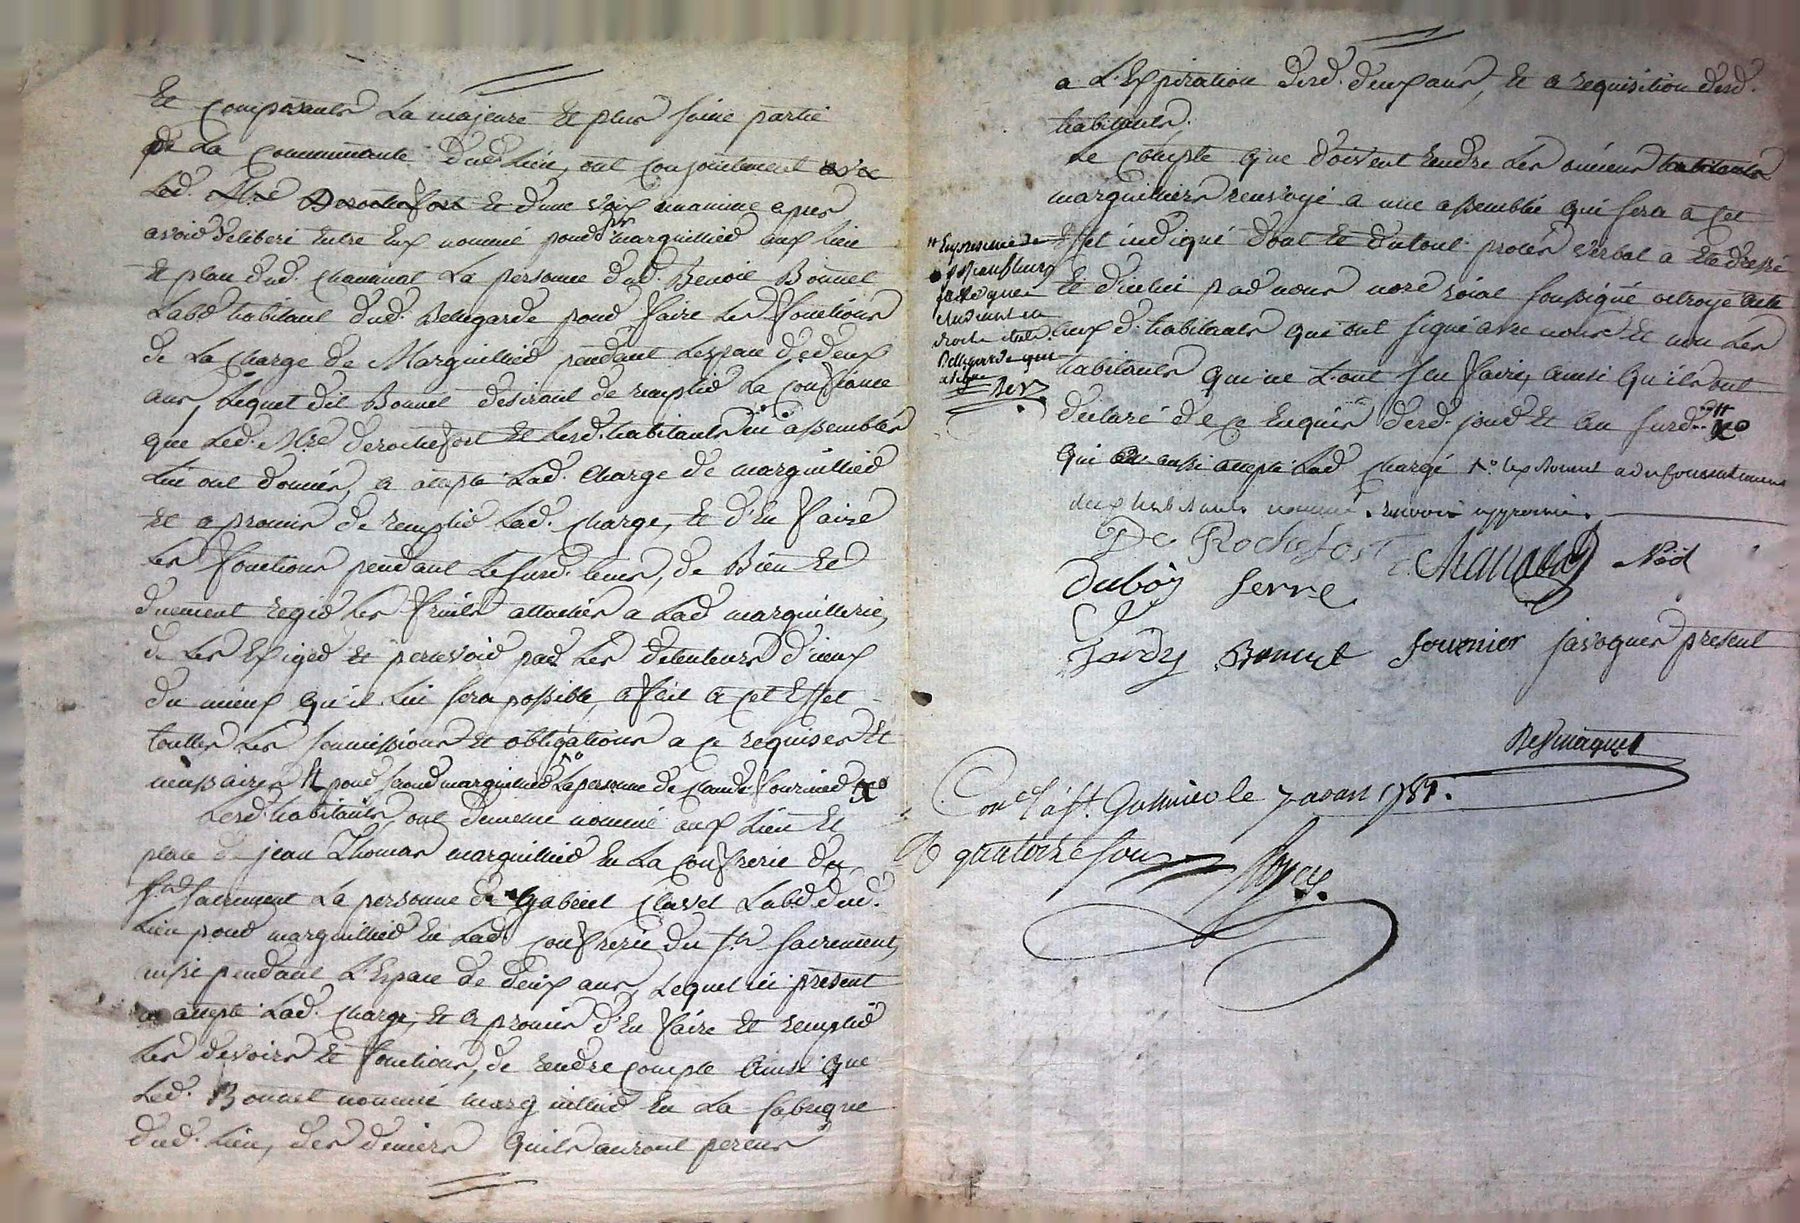 Et Composants La majeure Et plus saine partie
de La Communauté dud. Lieu, ont conjointement avec
Led. Mre Derochefort Et d'une voix unanime apres
avoir deliberé Entre Eux nommé pour 1er marguillier aux Lieu
Et place dud. Chavanat La personne dud. Benoit Bonnet
Labr habitant dud. Bellegarde pour faire Les fonctions
de La charge de Marguillier pendant L'espace de deux
ans, Lequel dit Bonnet desirant de remplir La Confiance
que Led. Mre derochefort Et Lesd. habitants ici assemblés
Lui ont donnés, a accepté Lad. Charge de marguillier
Et a promis de remplir Lad. Charge, Et d'En faire
Les fonctions pendant Le susd. tems, de Bien Et
duement regir Les fruits attachés a Lad marguillerie,
de Les Exiger Et percevoir par Les detenteurs d'iceux
du mieux qu'il Lui sera possible, a fait a cet Effet
touttes Les soumissions Et obligations a ce requises Et
necessaires Et pour second marguillier La personne de Claude fournier
Lesd. habitants, ont de meme nommé aux Lieu Et
place de jean Thomas marguillier En La Confrerie du
St. Sacrement La personne de Gabriel Clavel Labr dud.
Lieu pour marguillier En Lad. Confrerie du St. Sacrement,
aussi pendant L'Espace de deux ans, Lequel ici present
a accepté Lad. Charge, Et a promis d'En faire Et remplir
Les devoirs Et fonctions, de rendre compte Ainsi que
Led. Bonnet nommé marguillier En La fabrique
dud. Lieu, des deniers qu'ils auront percus
a L'Expiration desd. deux ans, Et a requisition desd.
habitants.
Le Compte que doivent rendre Les anciens habitants
marguilliers renvoyé a une assemblée qui sera a cet
Effet indiqué dont Et du tout procès verbal a Eté dressé
Et d'icelui par nous nore roial soussigné octroyé acte
aux d. habitants qui ont signé avec nous Et non Les
habitants qui ne L'ont seu faire, ainsi qu'ils ont
declaré de ce Enquis
En presence de
Bellegarde qui
qui aussi accepté Lad charge
renvoi approuvé.
De Rochefort Chanabas Noël
Duboy Serre
Gardy Bonnet fournier Javogues present
Desmaques
Con lé a St. Galmier le 7 avril 1787.
R quatorze sous